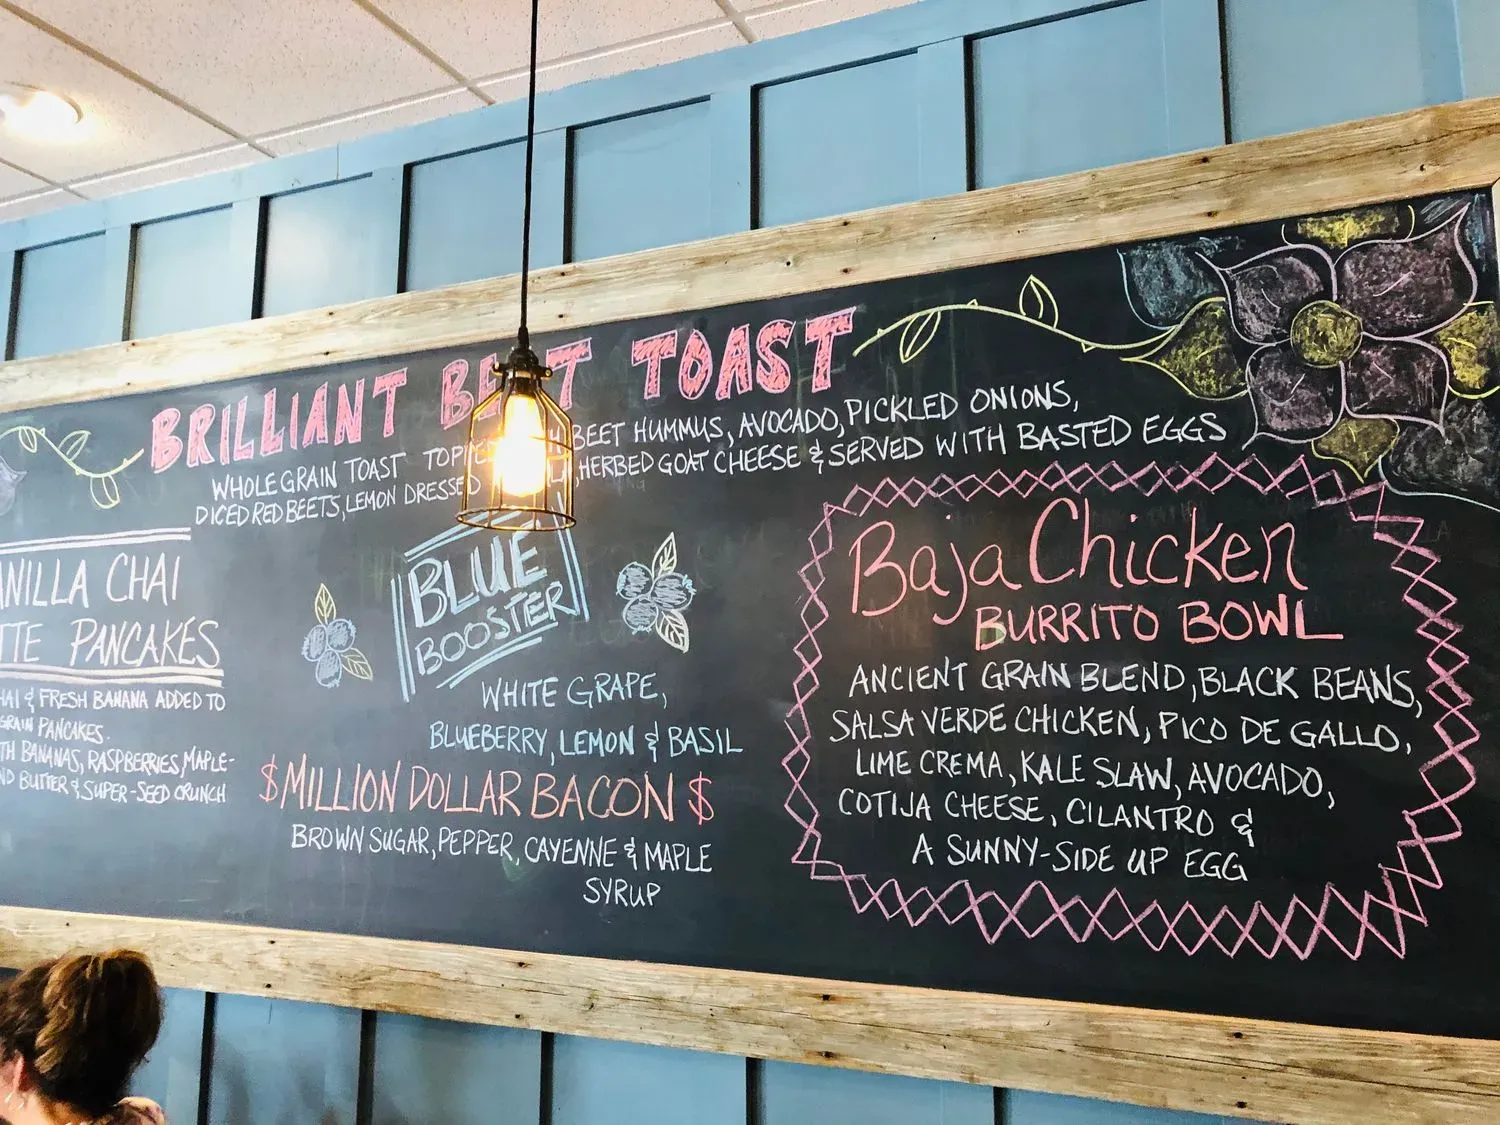 BRILLIANT BEET TOAST
WHOLE GRAIN TOAST BEET HUMMUS, AVOCADO, PICKLED ONIONS,
DICED RED BEETS, LEMON DRESSED HERBED GOAT CHEESE & SERVED WITH BASTED EGGS
ANILLA CHAI
TTE PANCAKES
HAI & FRESH BANANA ADDED TO
GRAIN PANCAKES.
TH BANANAS, RASPBERRIES, MAPLE-
ND BUTTER & SUPER-SEED CRUNCH
BLUE
BOOSTER
WHITE GRAPE,
BLUEBERRY, LEMON & BASIL
$MILLION DOLLAR BACON$
BROWN SUGAR, PEPPER, CAYENNE & MAPLE
SYRUP
Baja Chicken
BURRITO BOWL
ANCIENT GRAIN BLEND, BLACK BEANS,
SALSA VERDE CHICKEN, PICO DE GALLO,
LIME CREMA, KALE SLAW, AVOCADO,
COTIJA CHEESE, CILANTRO &
A SUNNY-SIDE UP EGG